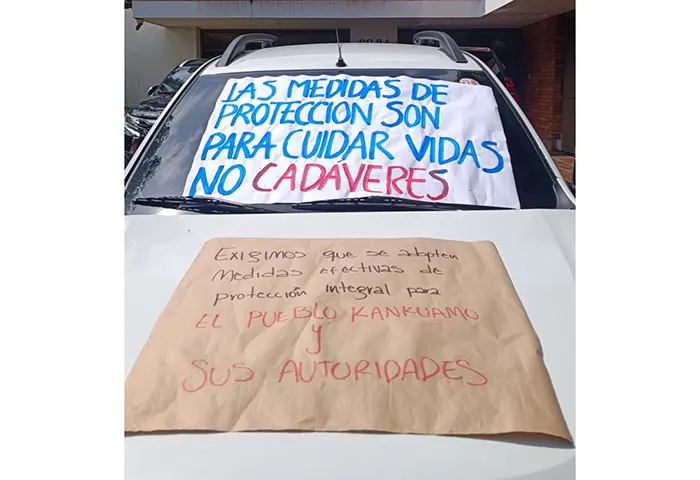 LAS MEDIDAS DE
PROTECCION SON
PARA CUIDAR VIDAS
NO CADAVERES
EXIGIMOS que se adopten
Medidas efectivas de
protección integral para
EL PUEBLO KANKUAMO
y
SUS AUTORIDADES